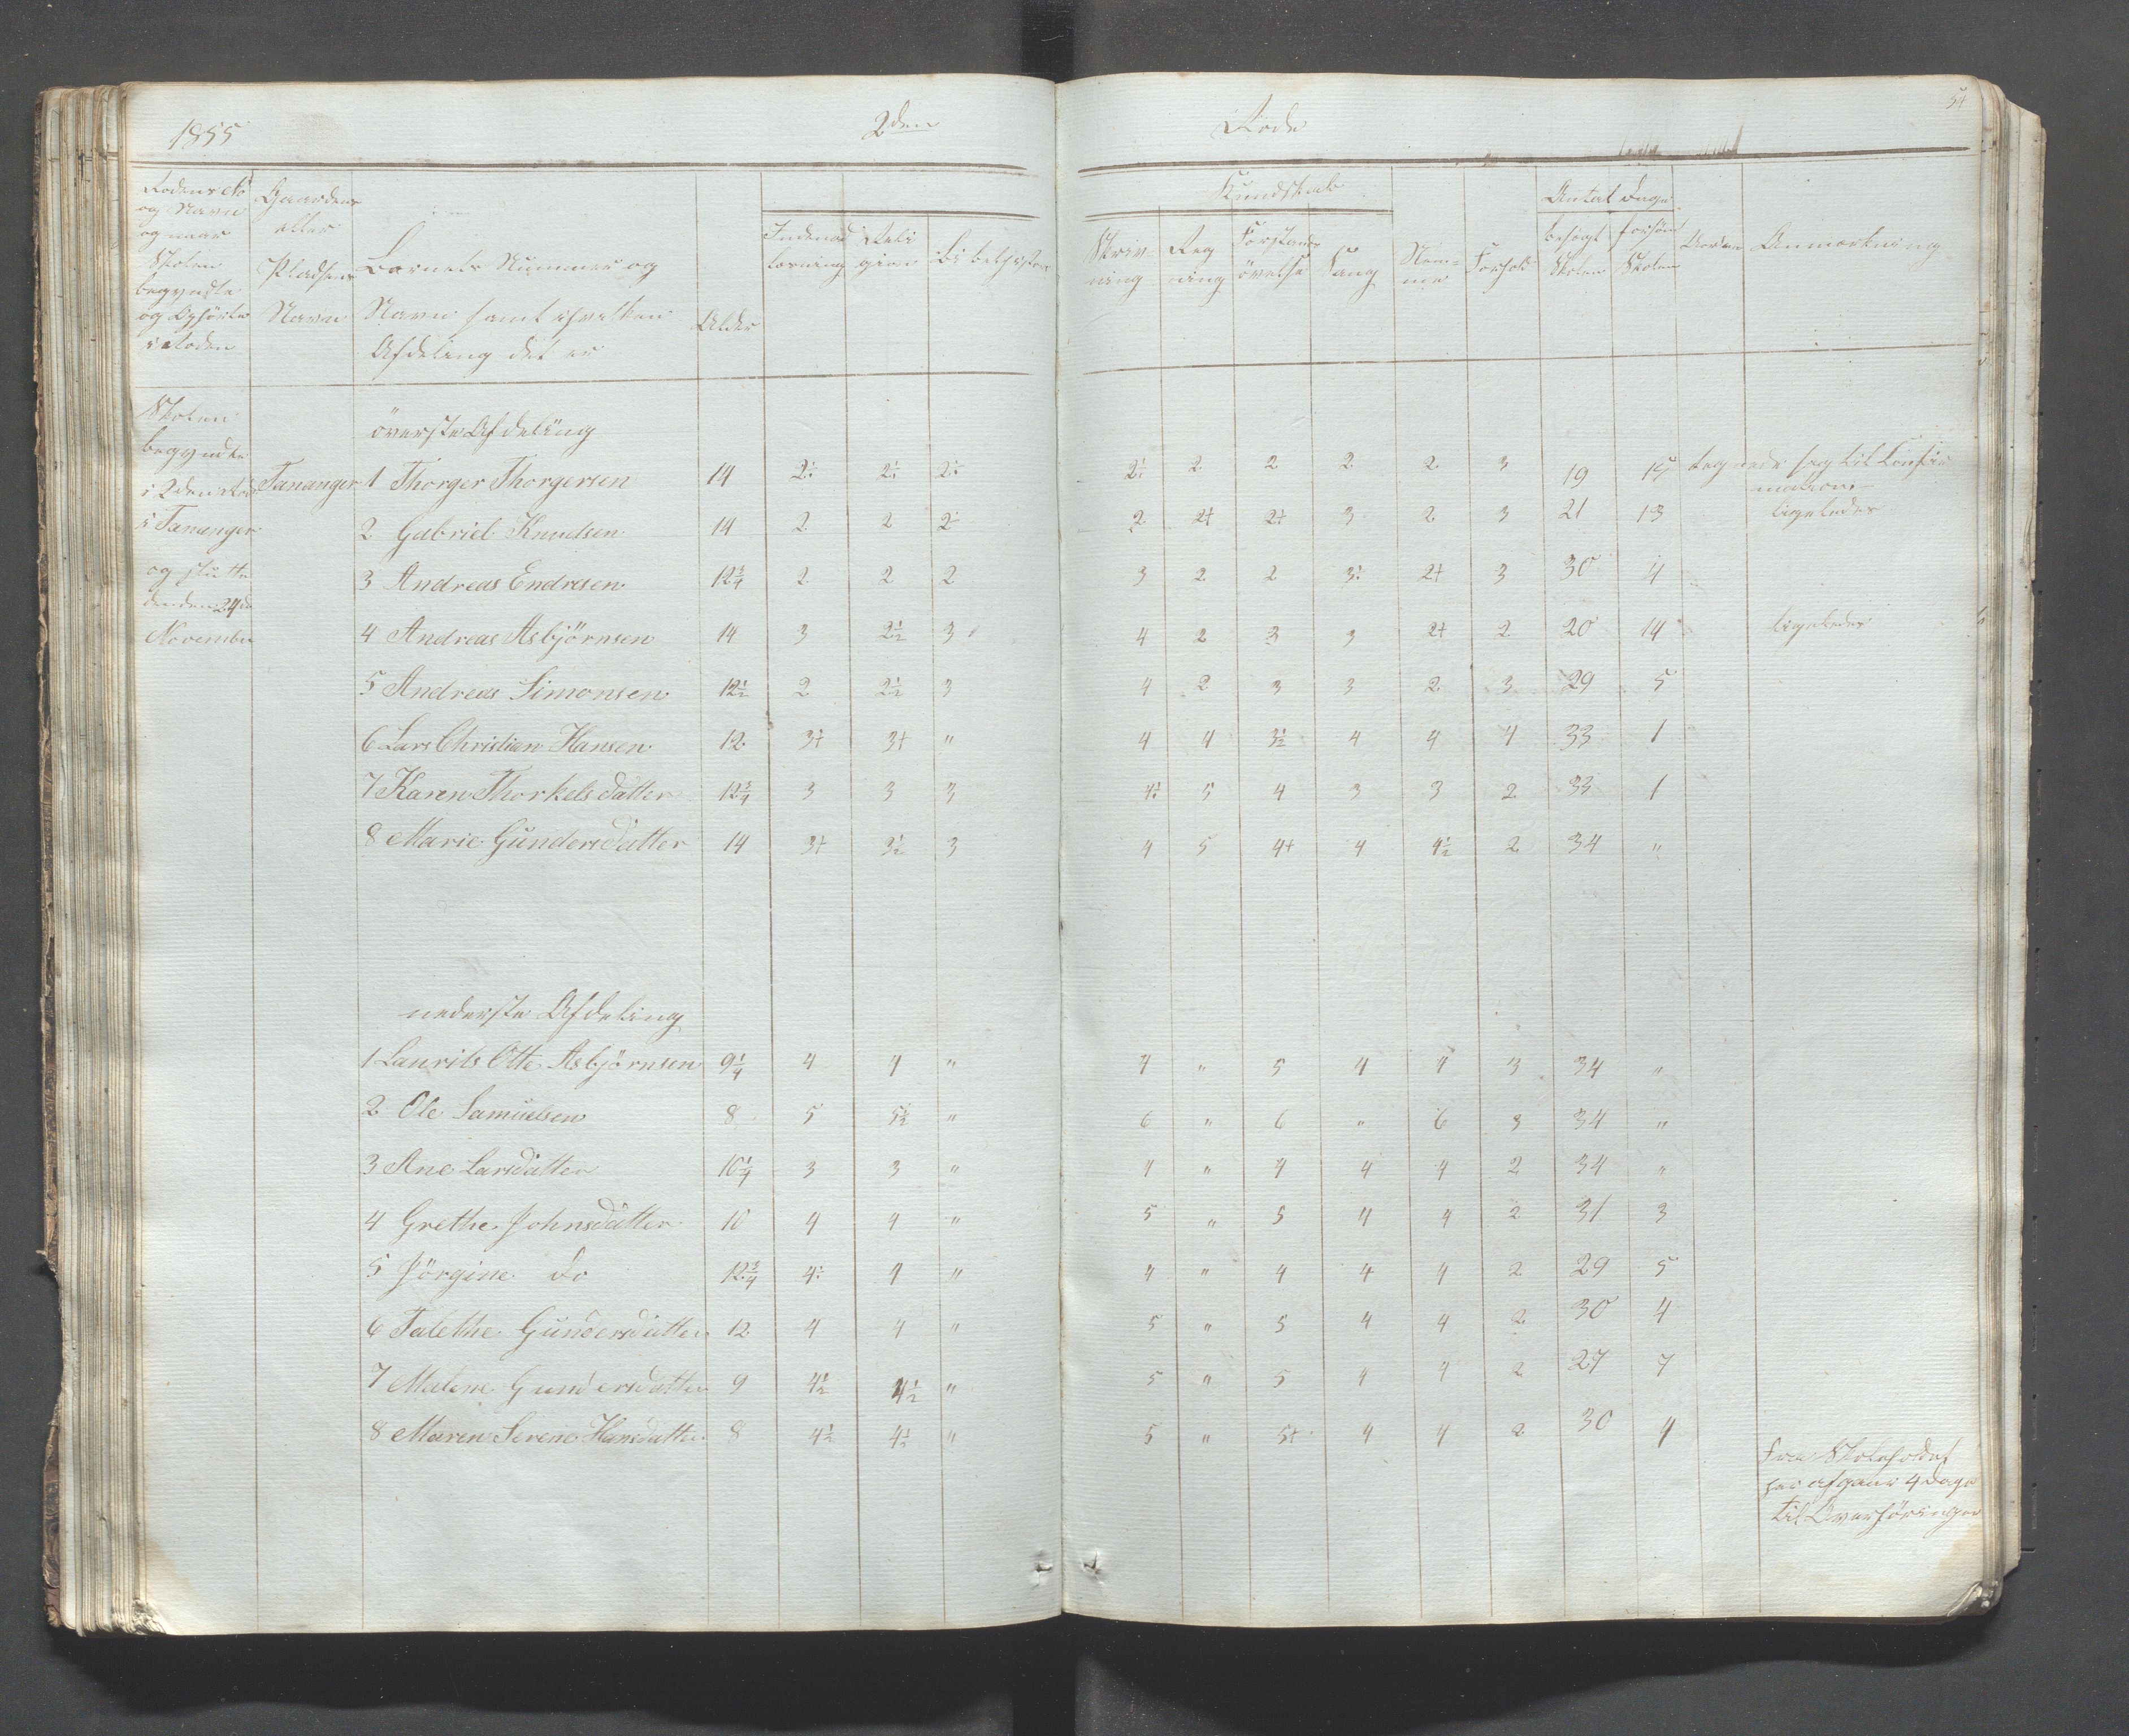 54
1855 2den Rode
Rodens No og Navn og naar Skolen begyndte og ophørte i Roden
Gaardens eller Pladsens Navn
Barnets Nummer og Navn samt i hvilken Afdeling det er
Alder
Indenad Læsning
Religion
Bibelhistorie
Kundskab
Skrivning
Regning
Forstandsøvelse
Sang
Nemme
Forhold
Antal Dage
besøgt Skolen
forsømt Skolen
Anmærkning
Skolen begyndte i 2den Rode i Tananger og sluttede den 24de November
överste Afdeling
Tananger 1 Thorger Thorgersen 14 2÷ 2÷ 2÷ 2÷ 2 2 2 2 3 19 15 tegnede sig til Confirmation
2 Gabriel Knudsen 14 2 2 2÷ 2 2+ 2+ 3 2 3 21 13 ligeledes
3 Andreas Endresen 12¾ 2 2 2 3 2 2 3÷ 2+ 3 30 4
4 Andreas Asbjörnsen 14 3 2½ 3 4 2 3 3 2+ 2 20 14 ligeledes
5 Andreas Simonsen 12½ 2 2½ 3 4 2 3 3 2 3 29 5
6 Lars Christian Hansen 12 3+ 3+ " 4 4 3½ 4 4 4 33 1
7 Karen Thorkelsdatter 12¾ 3 3 3 4÷ 5 4 3 3 2 33 1
8 Marie Gundersdatter 14 3+ 3½ 3 4 5 4+ 4 4½ 2 34 "
nederste Afdeling
1 Laurits Otte Asbjörnsen 9¼ 4 4 " 4 " 5 4 4 3 34 "
2 Ole Samuelsen 8 5 5½ " 6 " 6 " 6 3 34 "
3 Ane Larsdatter 10¼ 3 3 " 4 " 4 4 4 2 34 "
4 Grethe Johnsdatter 10 4 4 " 5 " 5 4 4 2 31 3
5 Jörgine do 12¾ 4÷ 4 " 4 " 4 4 4 2 29 5
6 Talethe Gundersdatter 12 4 4 " 5 " 5 4 4 2 30 4
7 Malene Gundersdatter 9 4½ 4½ " 5 " 5 4 4 2 27 7
8 Maren Serene Hansdatter 8 4½ 4½ " 5 " 5+ 4 4 2 30 4
Fra Skoleholdet
her afgaar 4 Dage
til Overhøringer